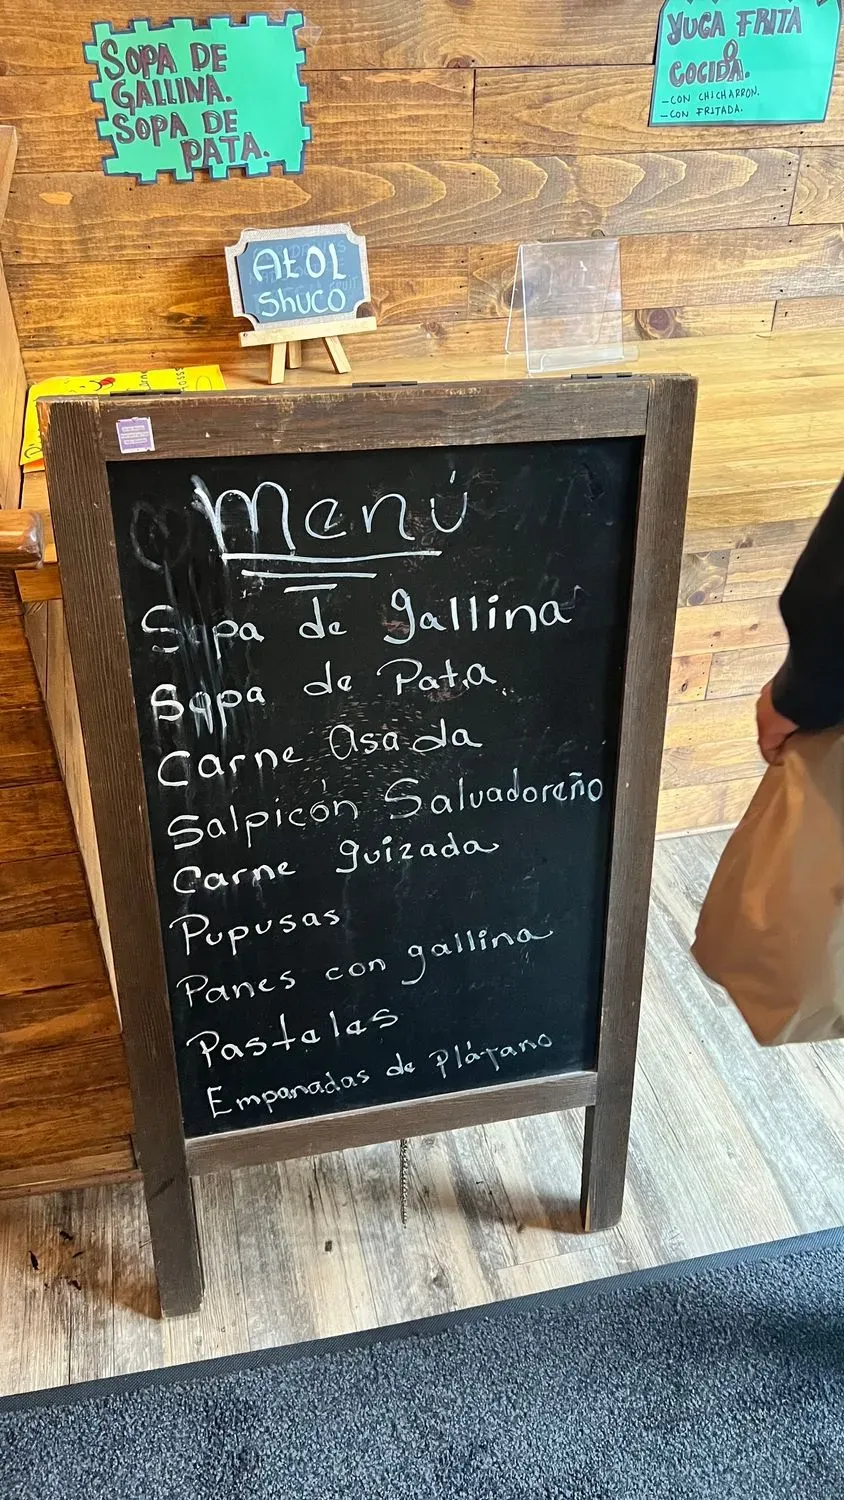 SOPA DE
GALLINA.
SOPA DE
PATA.
YUCA FRITA
O
COCIDA.
-CON CHICHARRON.
-CON FRITADA.
AtOL
Shuco
Menú
Sopa de gallina
Sopa de Pata
Carne Asada
Salpicón Salvadoreño
Carne guizada
Pupusas
Panes con gallina
Pasteles
Empanadas de Plátano